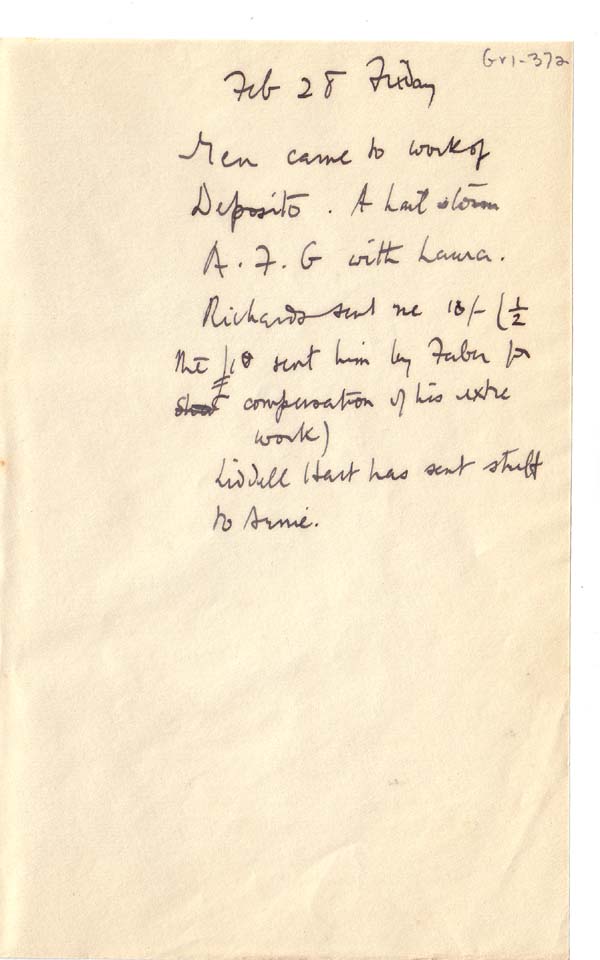 Gr1-372
Feb 28 Friday
Men came to work of
Deposito. A hail storm
A. F. G with Laura.
Richards sent me (½
the sent him by Faber for
compensation of his extra
work)
Liddell Hart has sent stuff
to